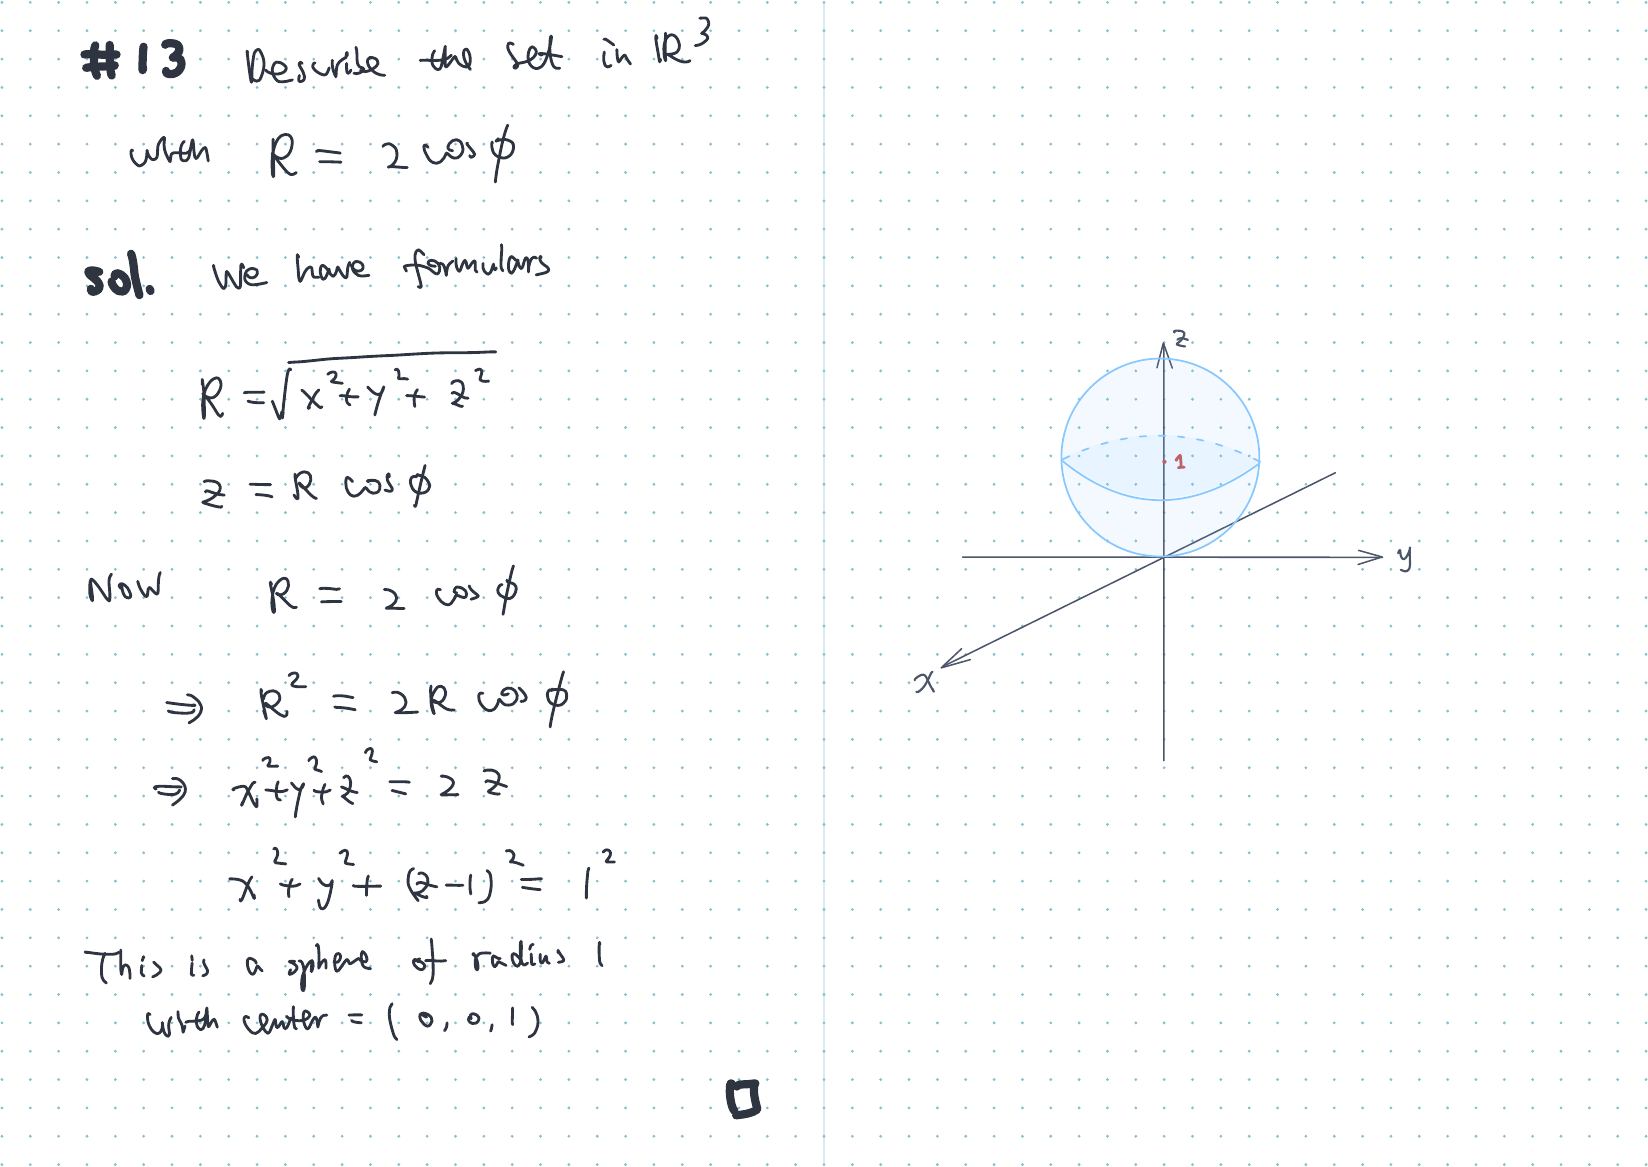 #13 Describe the set in ℝ³
with R = 2 cos ϕ
sol. We have formulars
R = √(x² + y² + z²)
z = R cos ϕ
Now R = 2 cos ϕ
⇒ R² = 2R cos ϕ
⇒ x² + y² + z² = 2 z
x² + y² + (z - 1)² = 1²
This is a sphere of radius 1
with center = (0, 0, 1)
z
1
y
x